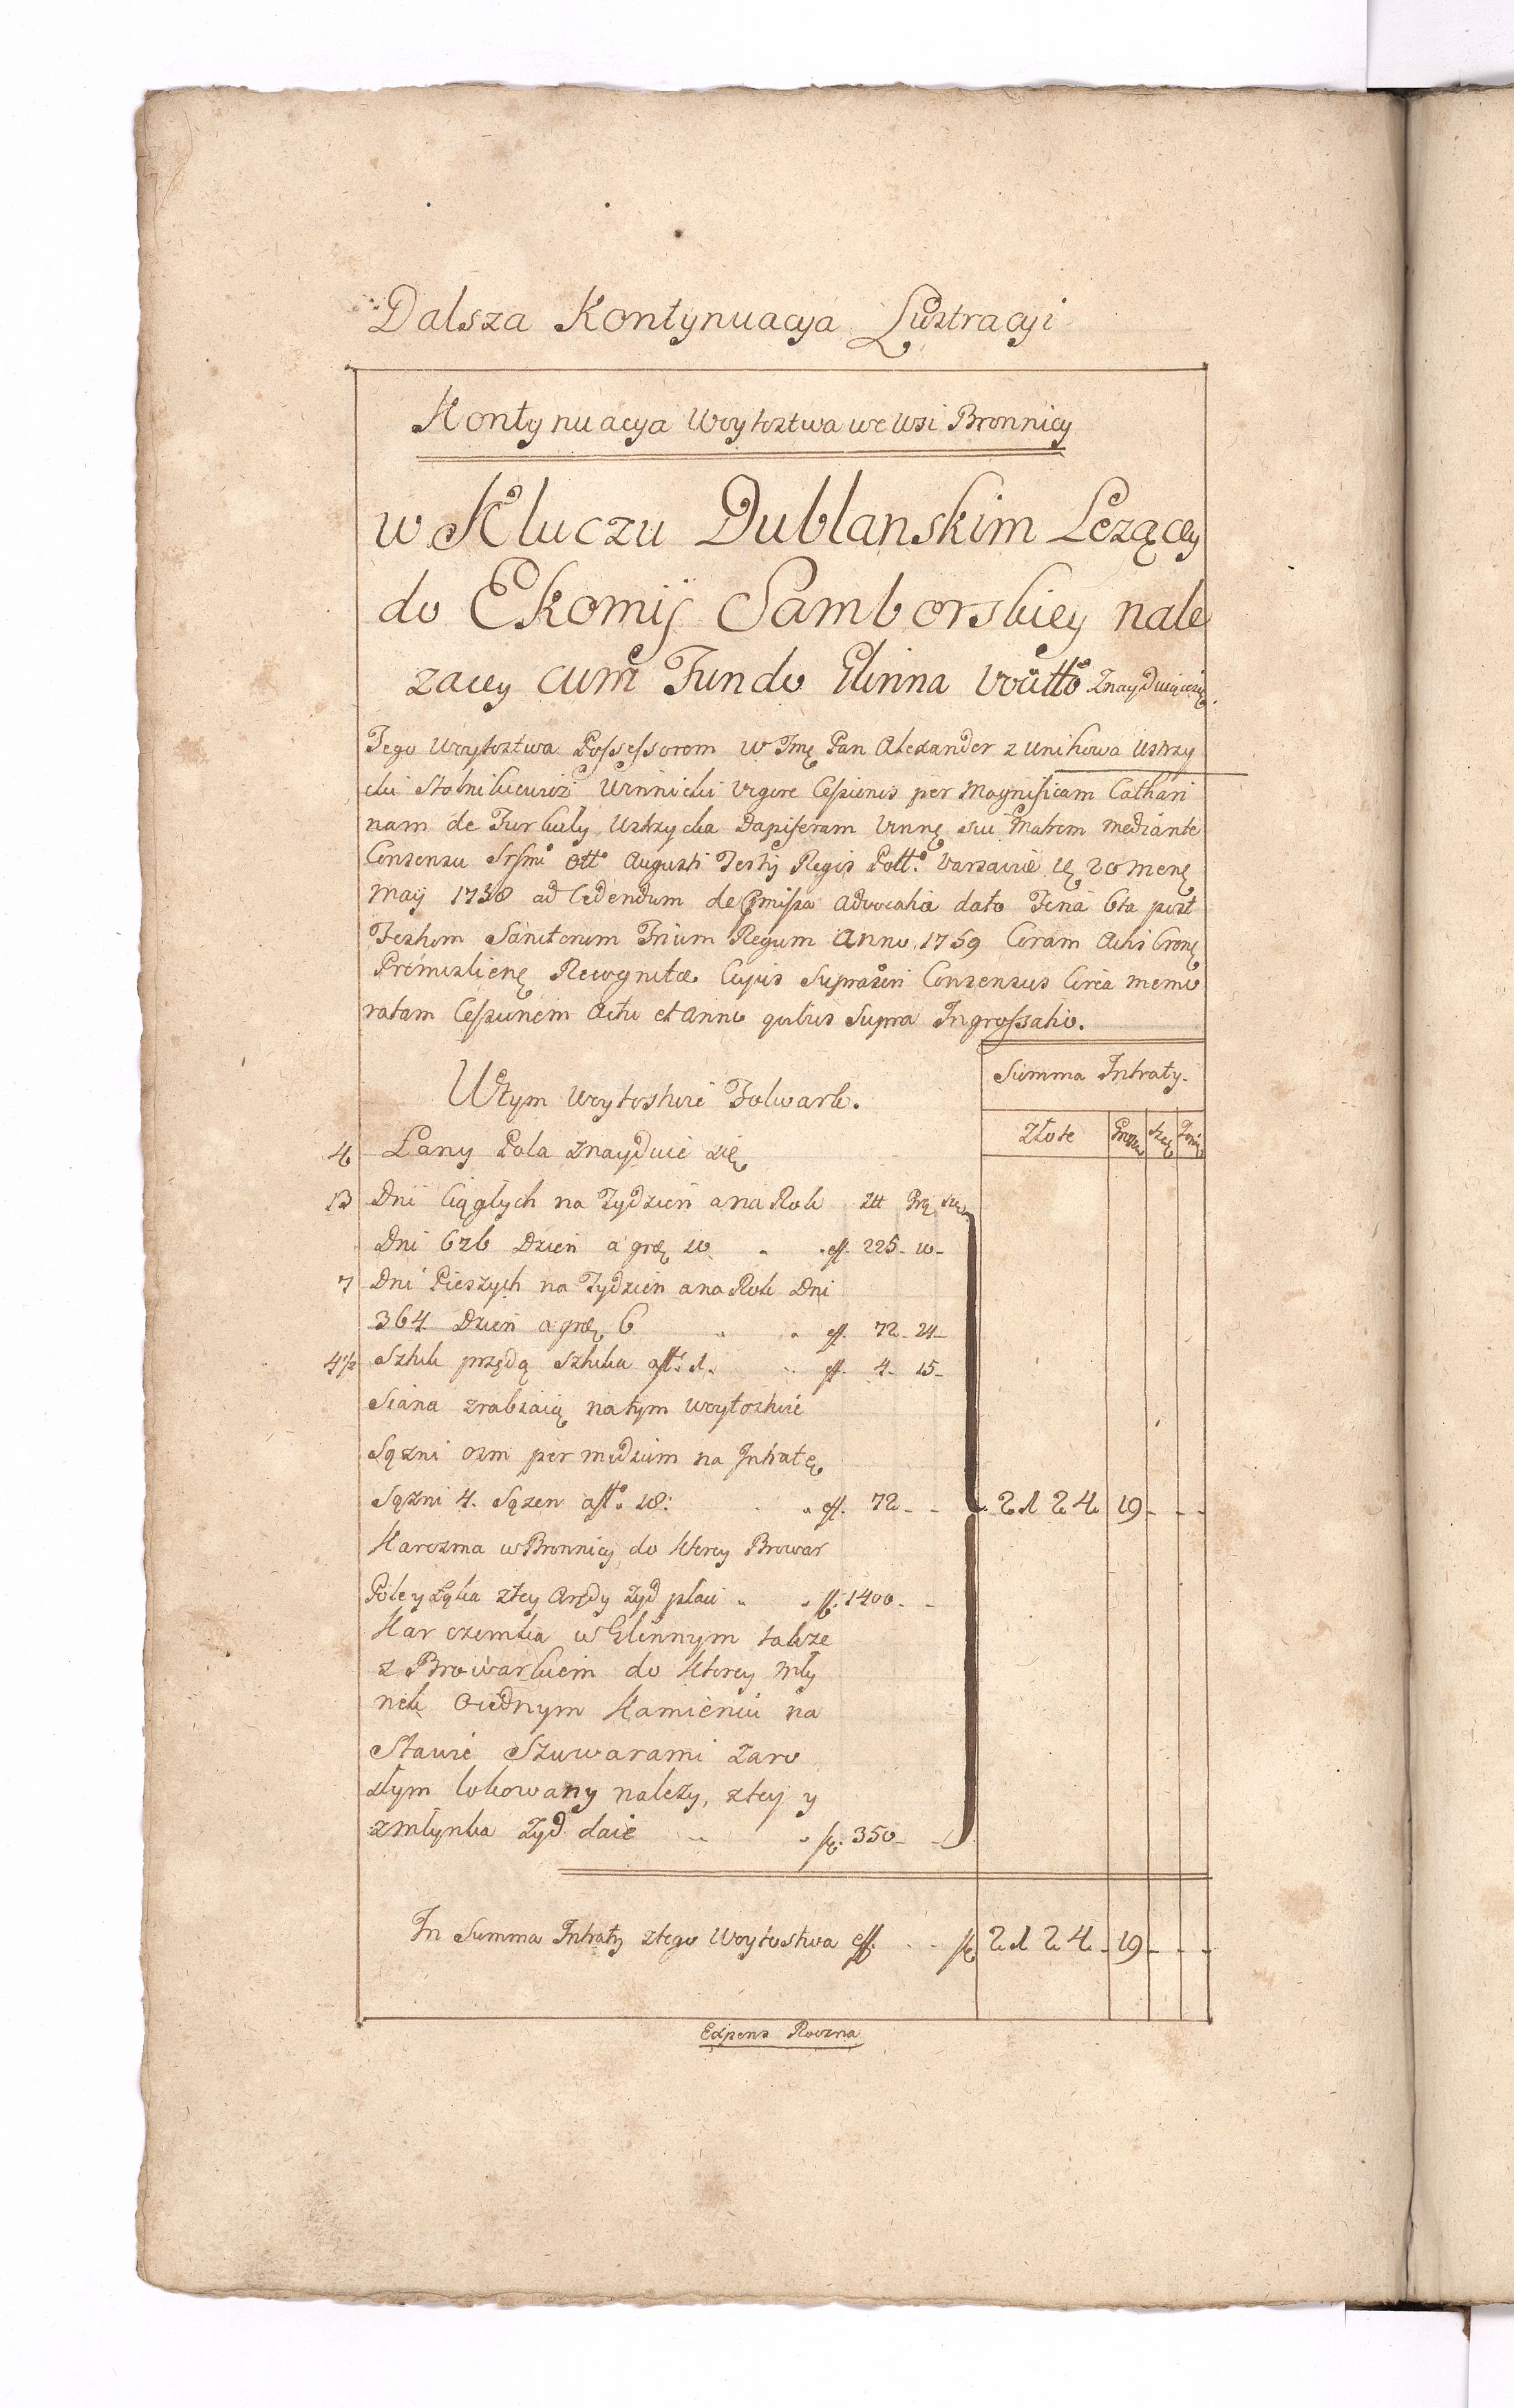 Dalsza Kontynuacya Lustracyi
Kontynuacya Woytostwa we Wsi Bronnicy
w Kluczu Dublanskim Lezącey
do Ekomij Samborskiey nale
zacey cum Fundo Glinna Znayduiącesię
Tego Woytostwa Possessorem W Jmę Pan Alexander z Unihowa Ustrzy
cki Stolnikiewicz Winnicki Vigore Cessionis per Magnificam Cathari
nam de Turkuly Ustrzycka Dapiferam Vinnę suu Matrem mediante
Consensu Srsmi Otto Augusti Tertij Regis Poll. Varsaviæ 20 mensę
Maÿ 1758 ad Cedendum de præmissa Advocatia dato Feria 6ta post
Festum Sanctorum Trium Regum Anno 1759 Coram Actis
Præmislienę Recognitæ Cujus Suprascri Consensus Circa memo
ratam Cessionem Actu et Anno qubus Supra Ingrossatio.
Summa Intraty.
W tym Woytostwie Folwark.
Złote Grosze Szel
4 Łany Pola znayduie się
13 Dni Ciągłych na Tydzień a na Rok Złł Grę Szę
Dni 676 Dzień a grę 10 . . eff. 225 - 10 -
7 Dni Pieszych na Tydzień a na Rok Dni
364 Dzień a grę 6 . . eff. 72 - 24 -
4½ Sztuk przędą Sztuka a fl. 1. .. eff. 4 - 15 -
Siana zrabiaią na tym Woytostwie
Sązni osm per medium na Intratę
Sązni 4. Sązen a fl. 18: . . eff. 72 - - 2124 19 - - -
Karczma w Bronnicy do Ktorey Browar
Pole y Łąka z tey Arędy Zyd płaci . . fl: 1400 - -
Karczemka w Glinnym takze
z Browarkiem do Ktorey Mły
nek o iednym Kamieniu na
Stawie Szuwarami zaro
słym lokowany nalezy, z tey y
z młynka Zyd daie .. . fl: 350 - -
In Summa Intraty z tego Woytostwa eff. . - fl 2124 - 19 - - -
Expens Roczna